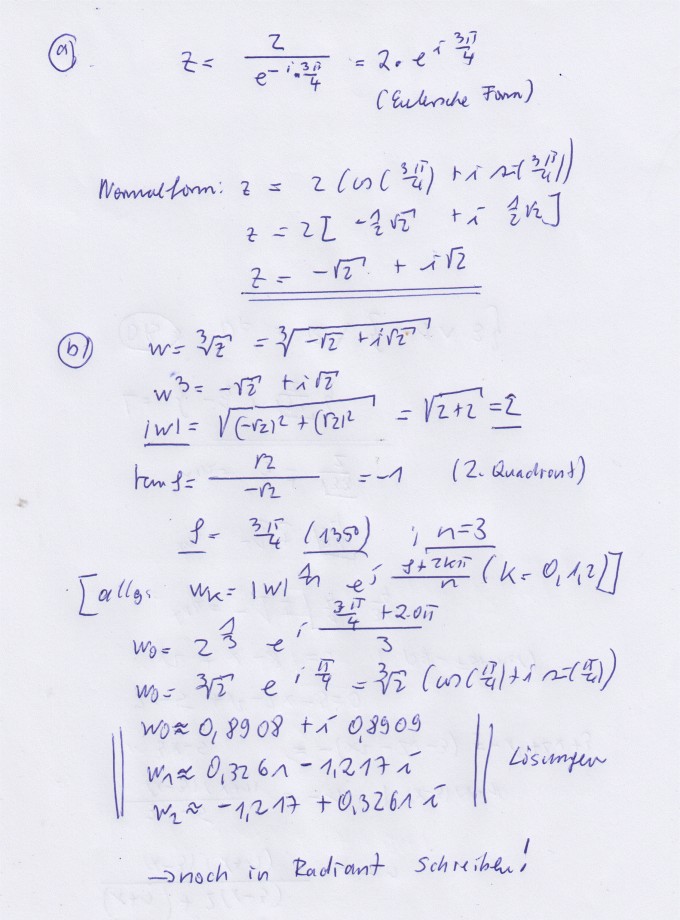 a) z = 2 / e^(-i·3π/4) = 2 · e^(i 3π/4)
(Eulersche Form)
Normalform: z = 2 (cos(3π/4) + i sin(3π/4))
z = 2[ -1/2 √2 + i 1/2 √2]
z = -√2 + i√2
b) w = ∛z = ∛(-√2 + i√2)
w³ = -√2 + i√2
|w| = √((-√2)² + (√2)²) = √(2+2) = 2
tan φ = √2 / -√2 = -1 (2. Quadrant)
φ = 3π/4 (135°) ; n=3
[allg: w_k = |w|^(1/n) e^(i (φ+2kπ)/n) (k=0,1,2)]
w_0 = 2^(1/3) e^(i (3π/4 + 2·0π)/3)
w_0 = ∛2 e^(i π/4) = ∛2 (cos(π/4) + i sin(π/4))
w_0 ≈ 0,8908 + i 0,8909
w_1 ≈ 0,3261 - 1,217 i
Lösungen
w_2 ≈ -1,217 + 0,3261 i
→ noch in Radiant schreiben!